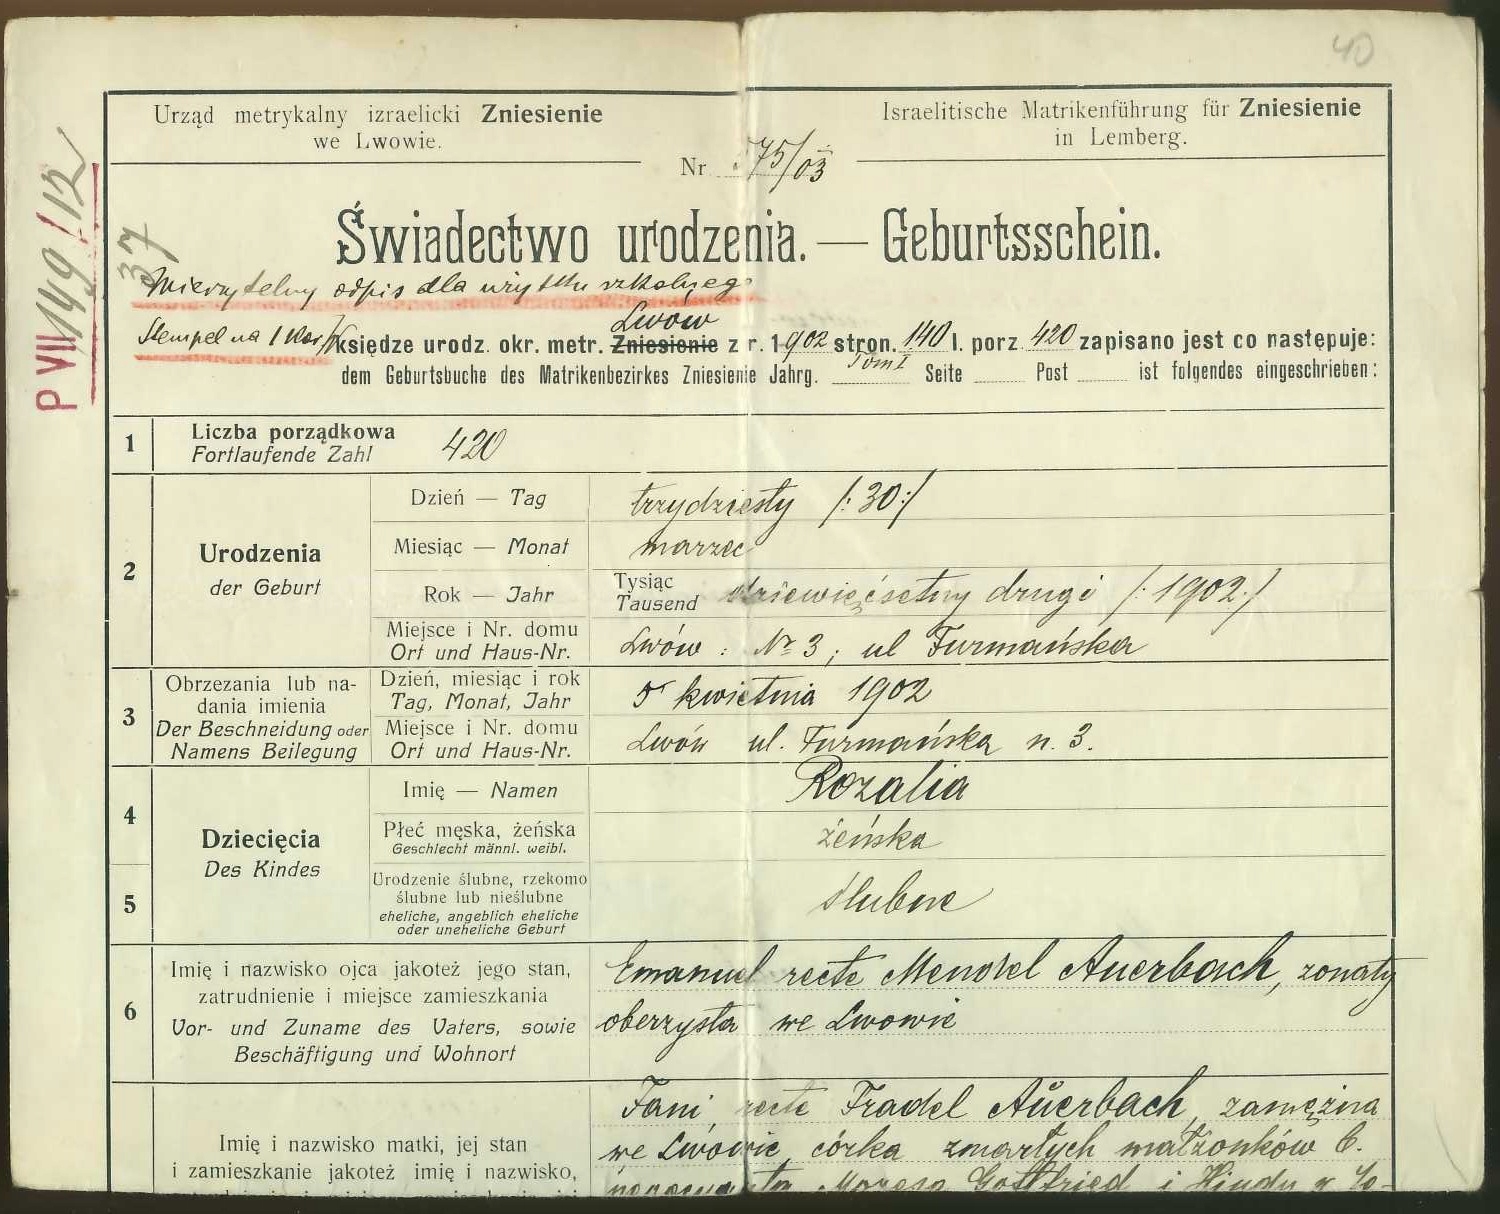 40
Urząd metrykalny izraelicki Zniesienie
we Lwowie.
Israelitische Matrikenführung für Zniesienie
in Lemberg.
Nr 575/03
P VII 199/12
37
Świadectwo urodzenia. — Geburtsschein.
Wierzytelny odpis dla użytku szkolnego
Stempel na 1 Kor
Lwów
księdze urodz. okr. metr. Zniesienie z r. 1902 stron. 140 l. porz 420 zapisano jest co następuje:
Tom I
dem Geburtsbuche des Matrikenbezirkes Zniesienie Jahrg. Seite Post ist folgendes eingeschrieben:
1 Liczba porządkowa 420
Fortlaufende Zahl
2 Urodzenia
der Geburt
Dzień — Tag trzydziesty /: 30 :/
Miesiąc — Monat marzec
Rok — Jahr Tysiąc Tausend dziewięćsetny drugi /: 1902 :/
Miejsce i Nr. domu
Ort und Haus-Nr. Lwów : Nr 3 ; ul Furmańska
3 Obrzezania lub na-
dania imienia
Der Beschneidung oder
Namens Beilegung
Dzień, miesiąc i rok
Tag, Monat, Jahr 5 kwietnia 1902
Miejsce i Nr. domu
Ort und Haus-Nr. Lwów ul. Furmańska n. 3.
4 Dziecięcia
Des Kindes
Imię — Namen Rozalia
Płeć męska, żeńska żeńska
Geschlecht männl. weibl.
5 Urodzenie ślubne, rzekomo
ślubne lub nieślubne ślubne
eheliche, angeblich eheliche
oder uneheliche Geburt
6 Imię i nazwisko ojca jakoteż jego stan,
zatrudnienie i miejsce zamieszkania
Vor- und Zuname des Vaters, sowie
Beschäftigung und Wohnort
Emanuel recte Mendel Auerbach, żonaty
oberzysta we Lwowie
Imię i nazwisko matki, jej stan
i zamieszkanie jakoteż imię i nazwisko,
Fani recte Fradel Auerbach, zamężna
we Lwowie córka zmarłych małżonków
Mozesa Gottfried i Hindy